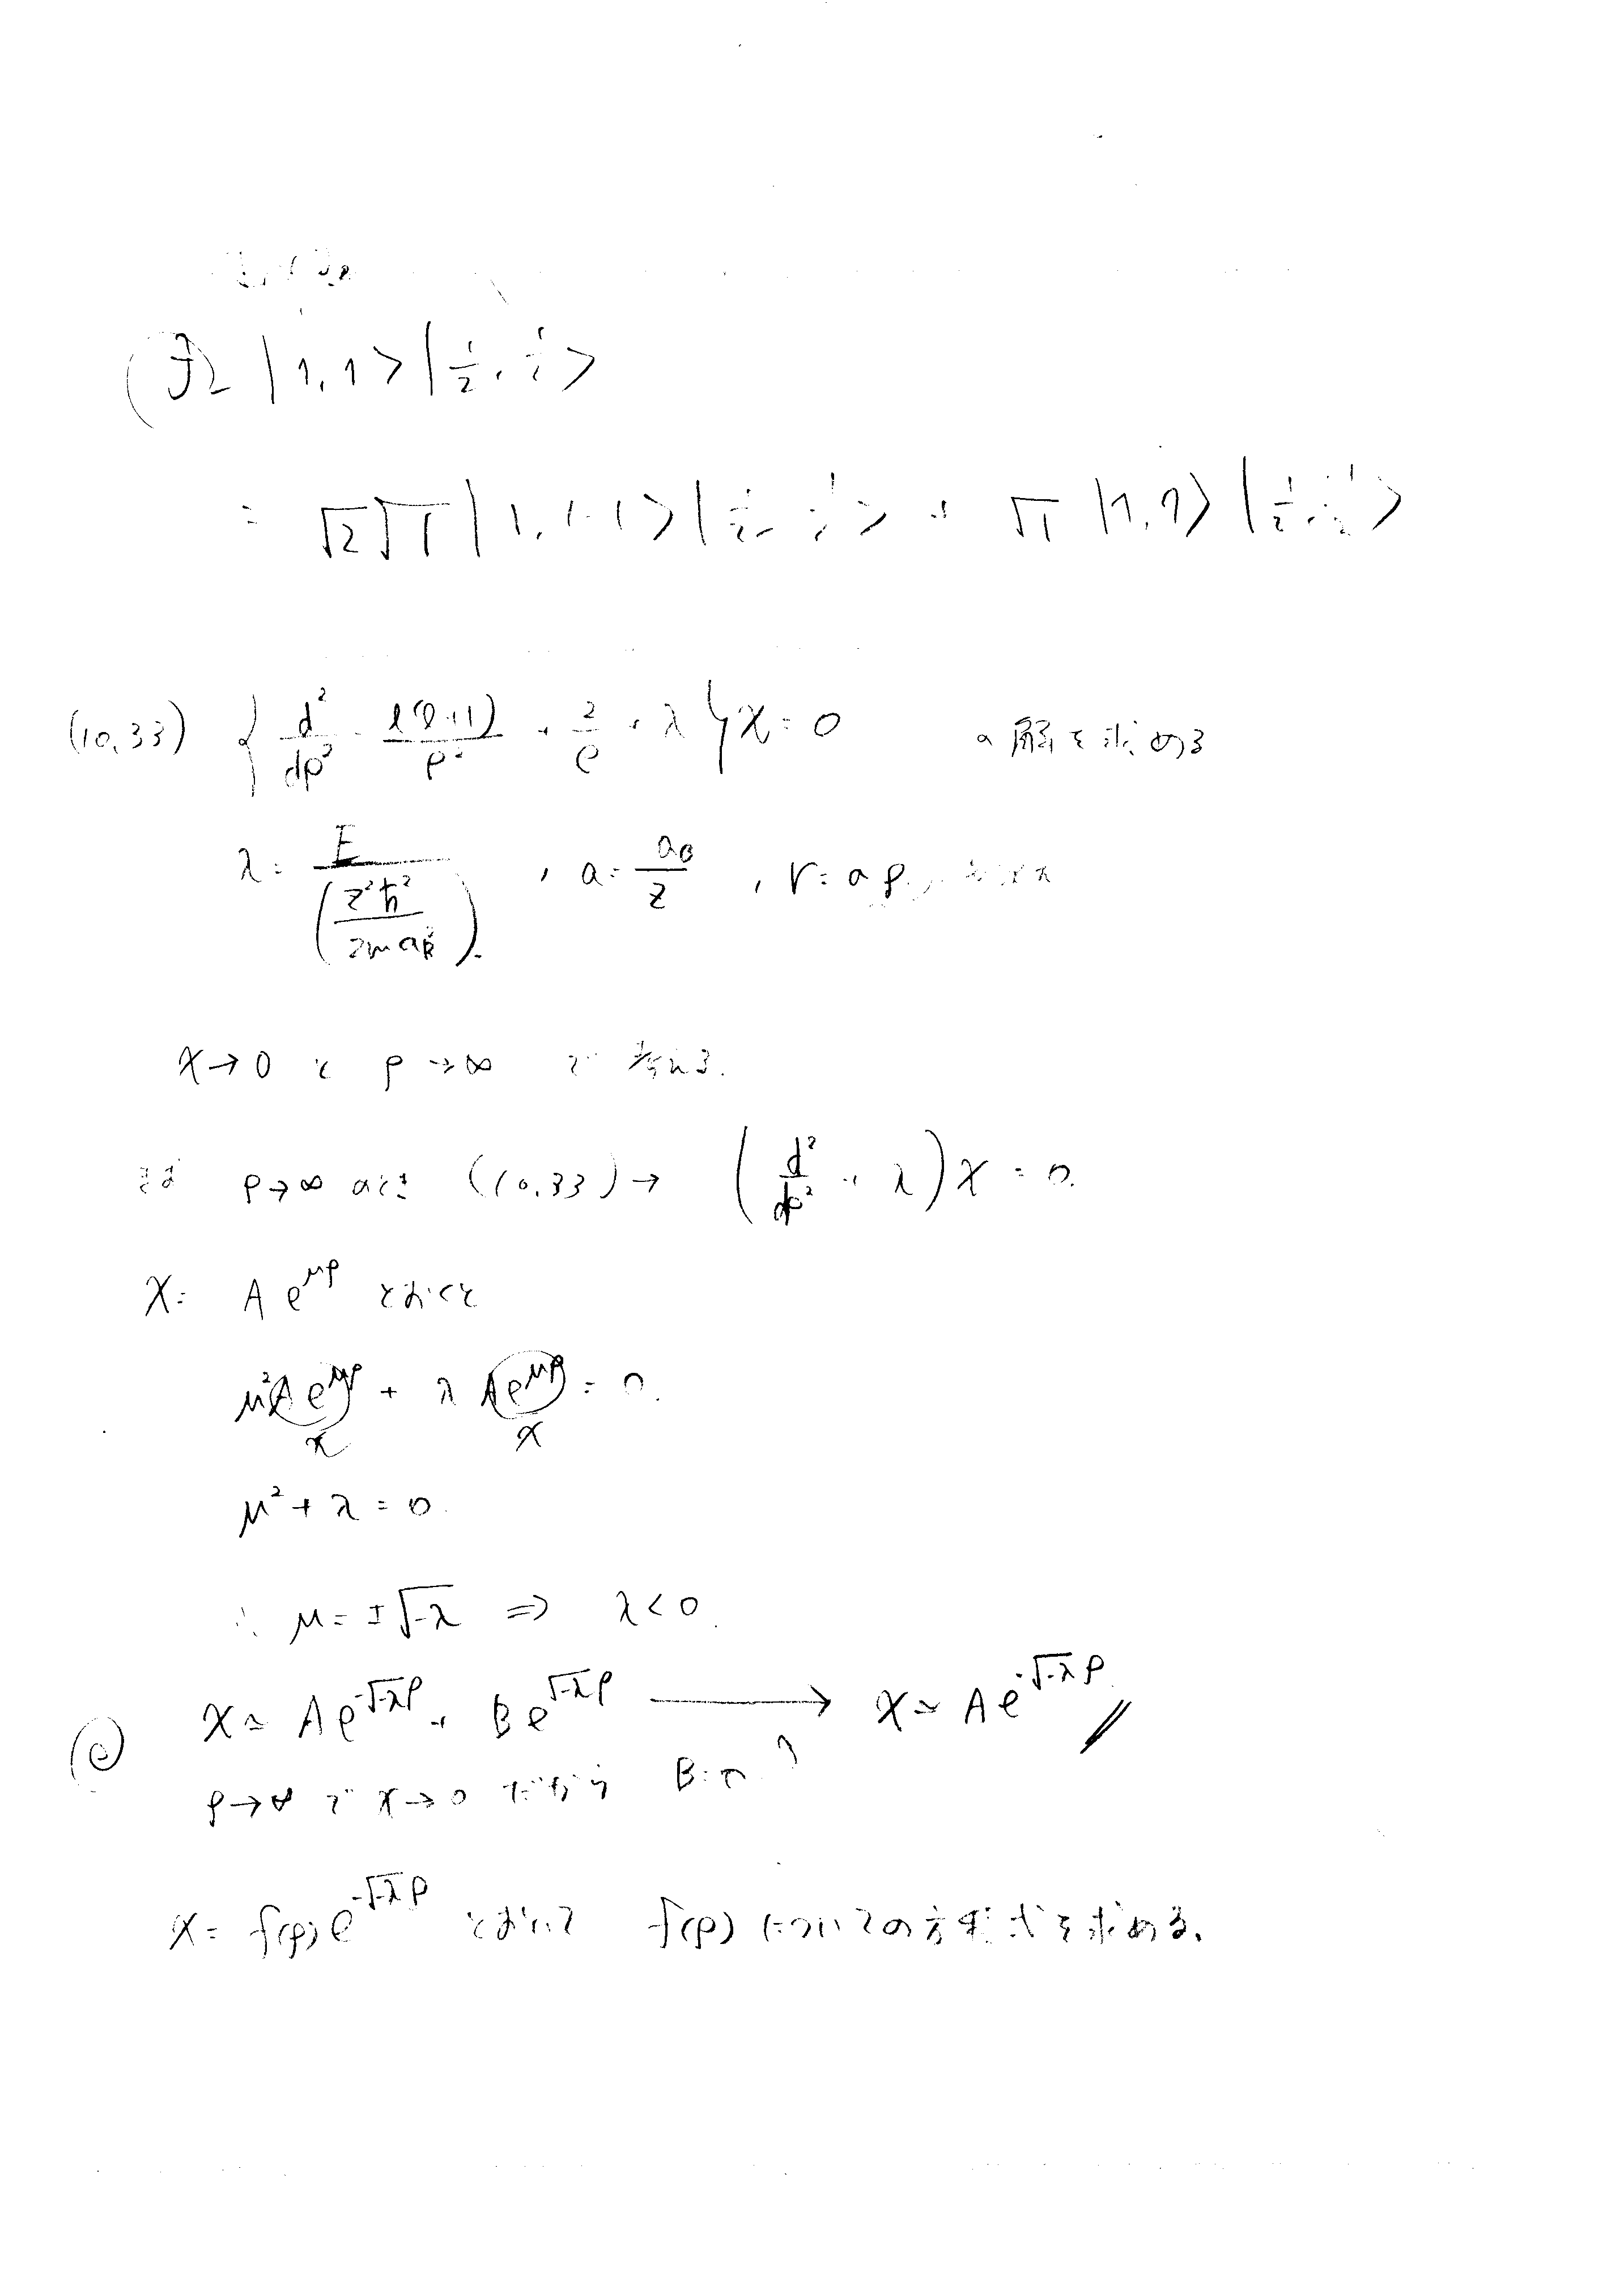 |1,1>|1/2, 1/2>
= √2√1 |1,1-1>|1/2, 1/2> + √1 |1,1>|1/2, 1/2
(10,33) { d²/dρ² - l(l+1)/ρ² + 2/ρ + λ } χ = 0 の解を求める
λ = E/(Z²ħ²/2ma_B²), a = a_B/Z, r = aρ
χ→0 と ρ→∞ で 考える.
まず ρ→∞ のとき (10,33) → (d²/dρ² + λ)χ = 0.
χ = A e^{μρ} とおくと
μ²A e^{μρ} + λ A e^{μρ} = 0.
χ χ
μ² + λ = 0.
∴ μ = ±√-λ ⇒ λ<0.
χ ≃ A e^{-√-λρ} + B e^{√-λρ} → χ ≃ A e^{-√-λρ}
ρ→∞ で χ→0 だから B=0
χ = f(ρ) e^{-√-λρ} とおいて f(ρ) についての方程式を求める.